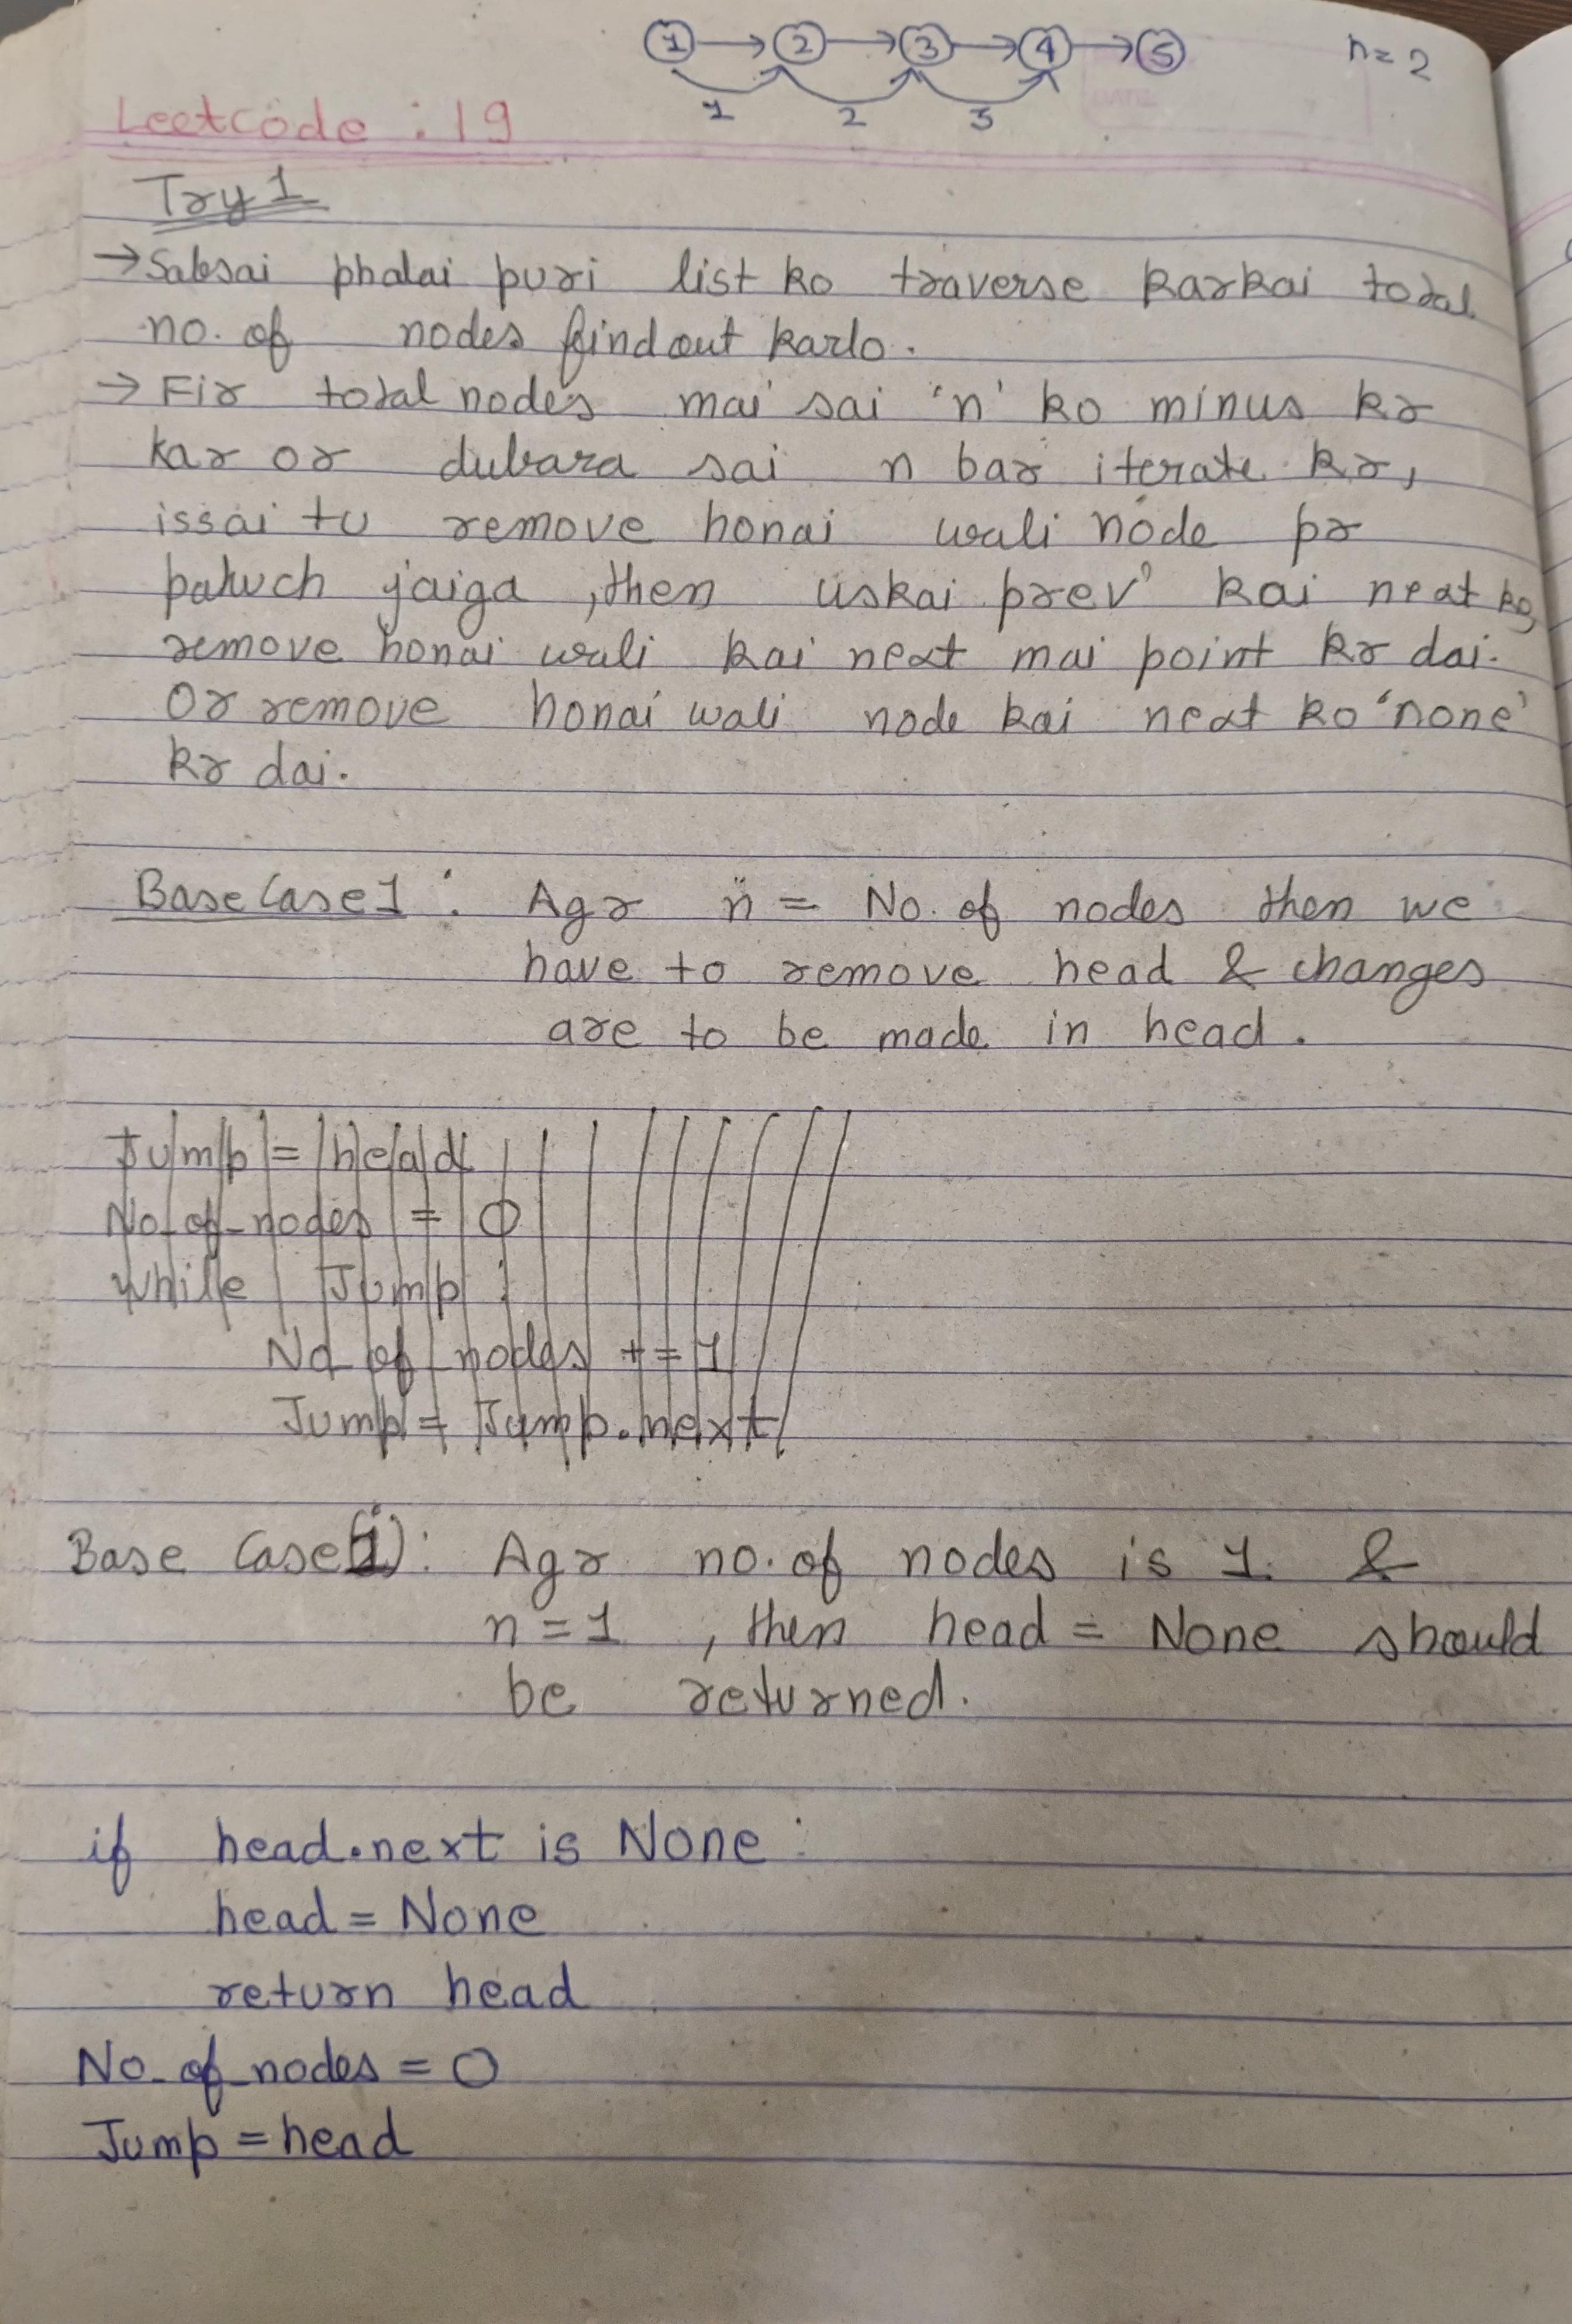 1 → 2 → 3 → 4 → 5 n=2
1 2 3
Leetcode : 19
Try 1
→ Sabsai phalai puri list ko traverse karkai total
no. of nodes find out karlo.
→ Fir total nodes mai sai 'n' ko minus kr
kar or dubara sai n bar iterate kr,
issai tu remove honai wali node pr
pahuch jaiga, then uskai prev' kai next ko,
remove honai wali kai next mai point kr dai.
Or remove honai wali node kai next ko 'none'
kr dai.
Base Case 1 : Agr n = No. of nodes then we
have to remove head & changes
are to be made in head.
Jump = head
No_of_nodes = 0
while Jump :
No_of_nodes += 1
Jump = Jump.next
Base Case (i) : Agr no. of nodes is 1 &
n=1 , then head = None should
be returned.
if head.next is None :
head = None
return head
No_of_nodes = 0
Jump = head